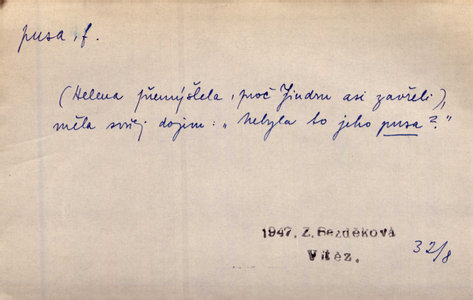 pusa, f.
(Helena přemýšlela, proč Jindru asi zavřeli),
měla svůj dojem: „Nebyla to jeho pusa?"
1947, Z. Bezděková
Vítěz.
32/8